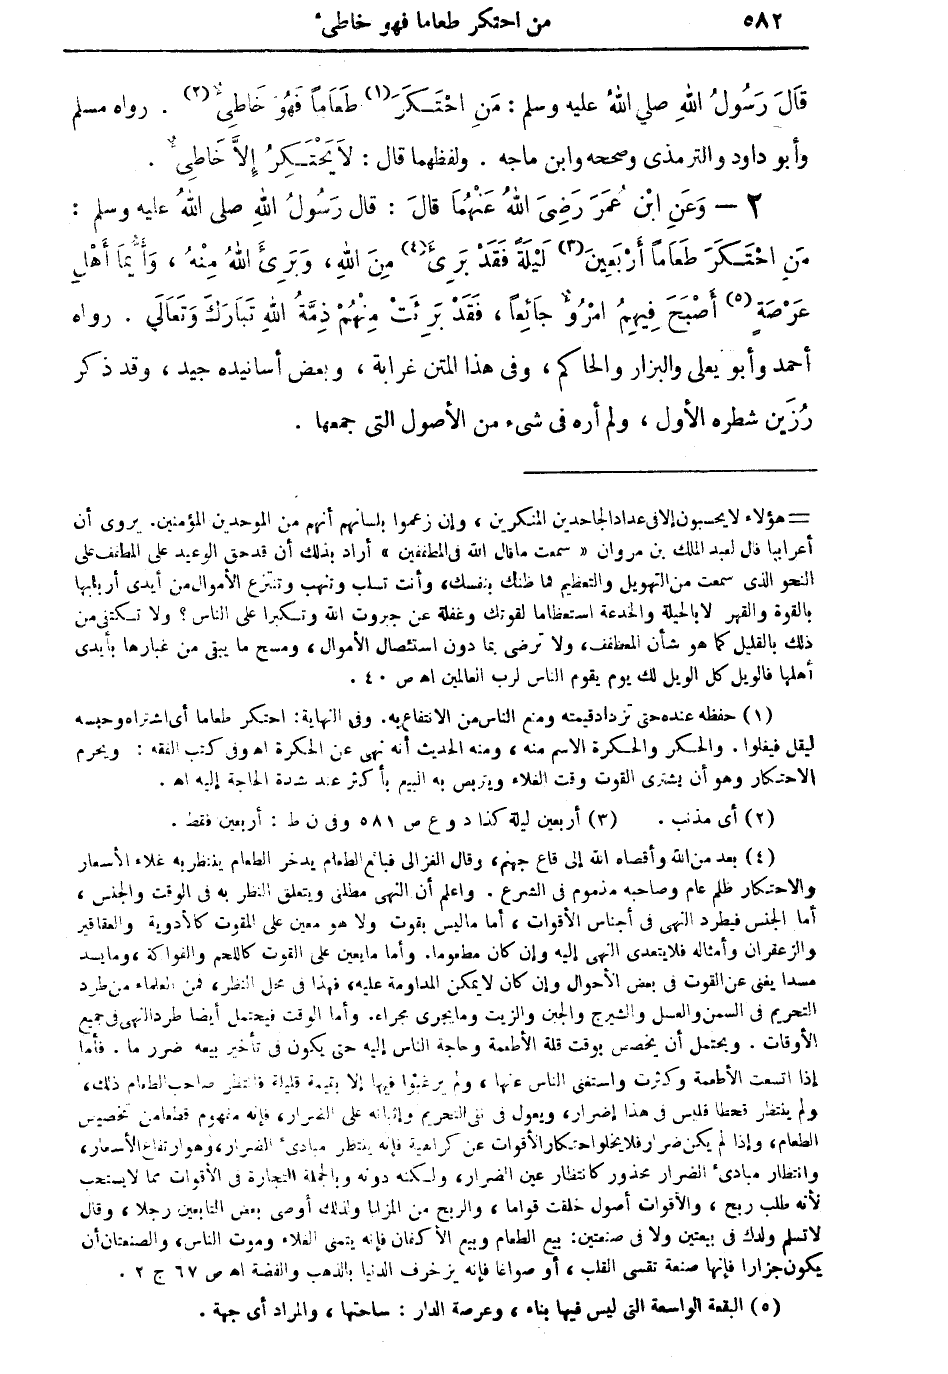 ٥٨٢ من احتكر طعاما فهو خاطىء
قَالَ رَسُولُ اللهِ صلي اللهُ عليه وسلم : مَنِ احْتَـكَرَ (١) طَعَاماً فَهُوَ خَاطِىءٌ (٢) . رواه مسلم
وأبو داود والترمذى وصححه وابن ماجه . ولفظهما قال : لاَ يَحْتَـكِرُ إِلاَّ خَاطِىءٌ .
٢ – وَعَنِ ابْنِ عُمَرَ رَضِىَ اللهُ عَنْهُمَا قالَ : قال رَسُولُ اللهِ صلى اللهُ عليه وسلم :
مَنِ احْتَـكَرَ طَعَاماً أَرْبَعِينَ (٣) لَيْلَةً فَقَدْ بَرِىءَ (٤) مِنَ اللهِ ، وَبَرِىءَ اللهُ مِنْهُ ، وَأَيُّمَا أَهْلِ
عَرْصَةٍ (٥) أَصْبَحَ فِيهِمُ امْرُؤٌ جَائِعاً ، فَقَدْ بَرِئَتْ مِنْهُمْ ذِمَّةُ اللهِ تَبَارَكَ وَتَعَالَي . رواه
أحمد وأبو يعلى والبزار والحاكم ، وفى هذا المتن غرابة ، وبعض أسانيده جيد ، وقد ذكر
رُزَين شطره الأول ، ولم أره فى شىء من الأصول التى جمعها .
= هؤلاء لا يحسبون إلا فى عداد الجاحدين المنكرين ، وإن زعموا بلسانهم أنهم من الموحدين المؤمنين. يروى أن
أعرابيا قال لعبد الملك بن مروان « سمعت ما قال الله فى المطففين » أراد بذلك أن قد حق الوعيد على المطفف على
النحو الذى سمعت من التهويل والتعظيم فما ظنك بنفسك، وأنت تسلب وتنهب وتنتزع الأموال من أيدى أربابها
بالقوة والقهر لا بالحيلة والخدعة استعظاما لقوتك وغفلة عن جبروت الله وتكبرا على الناس ؟ ولا تكتفى من
ذلك بالقليل كما هو شأن المطفف، ولا ترضى بما دون استئصال الأموال ، ومسح ما يبقى من غبارها بأيدى
أهلها فالويل كل الويل لك يوم يقوم الناس لرب العالمين اه ص ٤٠ .
(١) حفظه عنده حتى تزداد قيمته ومنع الناس من الانتفاع به. وفى النهاية: احتكر طعاما أى اشتراه وحبسه
ليقل فيغلوا . والحكر والحكرة الاسم منه ، ومنه الحديث أنه نهى عن الحكرة اه وفى كتب الفقه : ويحرم
الاحتكار وهو أن يشترى القوت وقت الغلاء ويتربص به البيع بأكثر عند شدة الحاجة إليه اه .
(٢) أى مذنب . (٣) أربعين ليلة كذا د و ع ص ٥٨١ وفى ن ط : أربعين فقط .
(٤) بعد من الله وأقصاه الله إلى قاع جهنم، وقال الغزالى فبائع الطعام يدخر الطعام ينتظر به غلاء الأسعار
والاحتكار ظلم عام وصاحبه مذموم فى الشرع . واعلم أن النهى مطلق ويتعلق النظر به فى الوقت والجنس ،
أما الجنس فيطرد النهى فى أجناس الأقوات ، أما ما ليس بقوت ولا هو معين على المقوت كالأدوية والعقاقير
والزعفران وأمثاله فلا يتعدى النهى إليه وإن كان مطعوما. وأما ما يعين على القوت كاللحم والفواكة ، وما يسد
مسدا يغنى عن القوت فى بعض الأحوال وإن كان لا يمكن المداومة عليه، فهذا فى محل النظر، فمن العلماء من طرد
التحريم فى السمن والعسل والشيرج والجبن والزيت وما يجرى مجراه. وأما الوقت فيحتمل أيضا طرد النهى فى جميع
الأوقات . ويحتمل أن يخصص بوقت قلة الأطعمة وحاجة الناس إليه حتى يكون فى تأخير بيعه ضرر ما . فأما
إذا اتسعت الأطعمة وكثرت واستغنى الناس عنها ، ولم يرغبوا فيها إلا بقيمة قليلة فانتظر صاحب الطعام ذلك،
ولم ينتظر قحطا فليس فى هذا إضرار، ويعول فى نفى التحريم وإثباته على الضرار، فإنه مفهوم قطعا من تخصيص
الطعام، وإذا لم يكن ضرار فلا يخلوا احتكار الأقوات عن كراهية فإنه ينتظر مبادىء الضرار، وهو ارتفاع الأسعار،
وانتظار مبادىء الضرار محذور كانتظار عين الضرار، ولكنه دونه وبالجملة التجارة فى الأقوات مما لا يستحب
لأنه طلب ربح ، والأقوات أصول خلقت قواما ، والربح من المزايا ولذلك أوصى بعض التابعين رجلا ، وقال
لا تسلم ولدك فى بيعتين ولا فى صنعتين: بيع الطعام وبيع الأكفان فإنه يتمنى الغلاء وموت الناس، والصنعتان أن
يكون جزارا فإنها صنعة تقسى القلب ، أو صواغا فإنه يزخرف الدنيا بالذهب والفضة اه ص ٦٧ ج ٢ .
(٥) البقعة الواسعة التى ليس فيها بناء ، وعرصة الدار : ساحتها ، والمراد أى جهة .